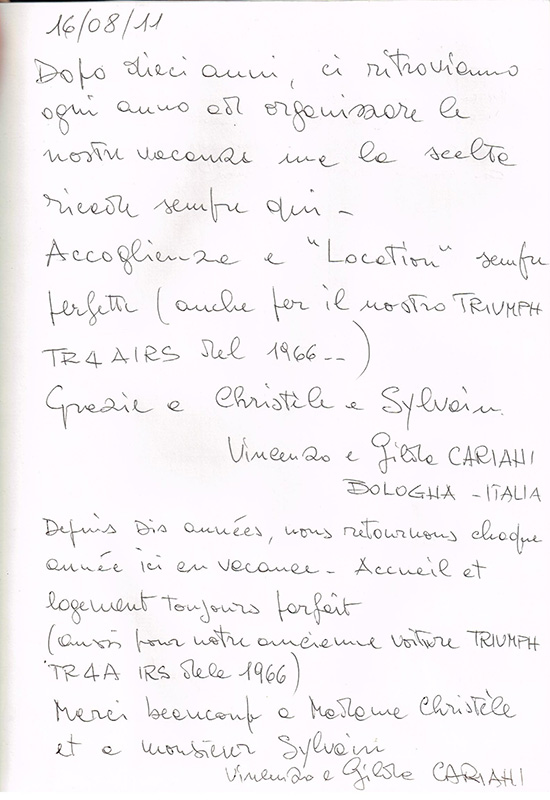 16/08/11
Dopo dieci anni, ci ritroviamo
ogni anno ad organizzare le
nostre vacanze ma la scelta
ricade sempre qui -
Accoglienza e "Location" sempre
perfette (anche per il nostro TRIUMPH
TR4 AIRS del 1966--)
Grazie a Christèle e Sylvain.
Vincenzo e Gilda CARIANI
BOLOGNA - ITALIA
Depuis dis années, nous retournons chaque
année ici en vacance - Accueil et
logement toujours parfait
(aussi pour notre ancienne voiture TRIUMPH
TR4A IRS dele 1966)
Merci beaucoup a Madame Christèle
et a monsieur Sylvain
Vincenzo e Gilda CARIANI